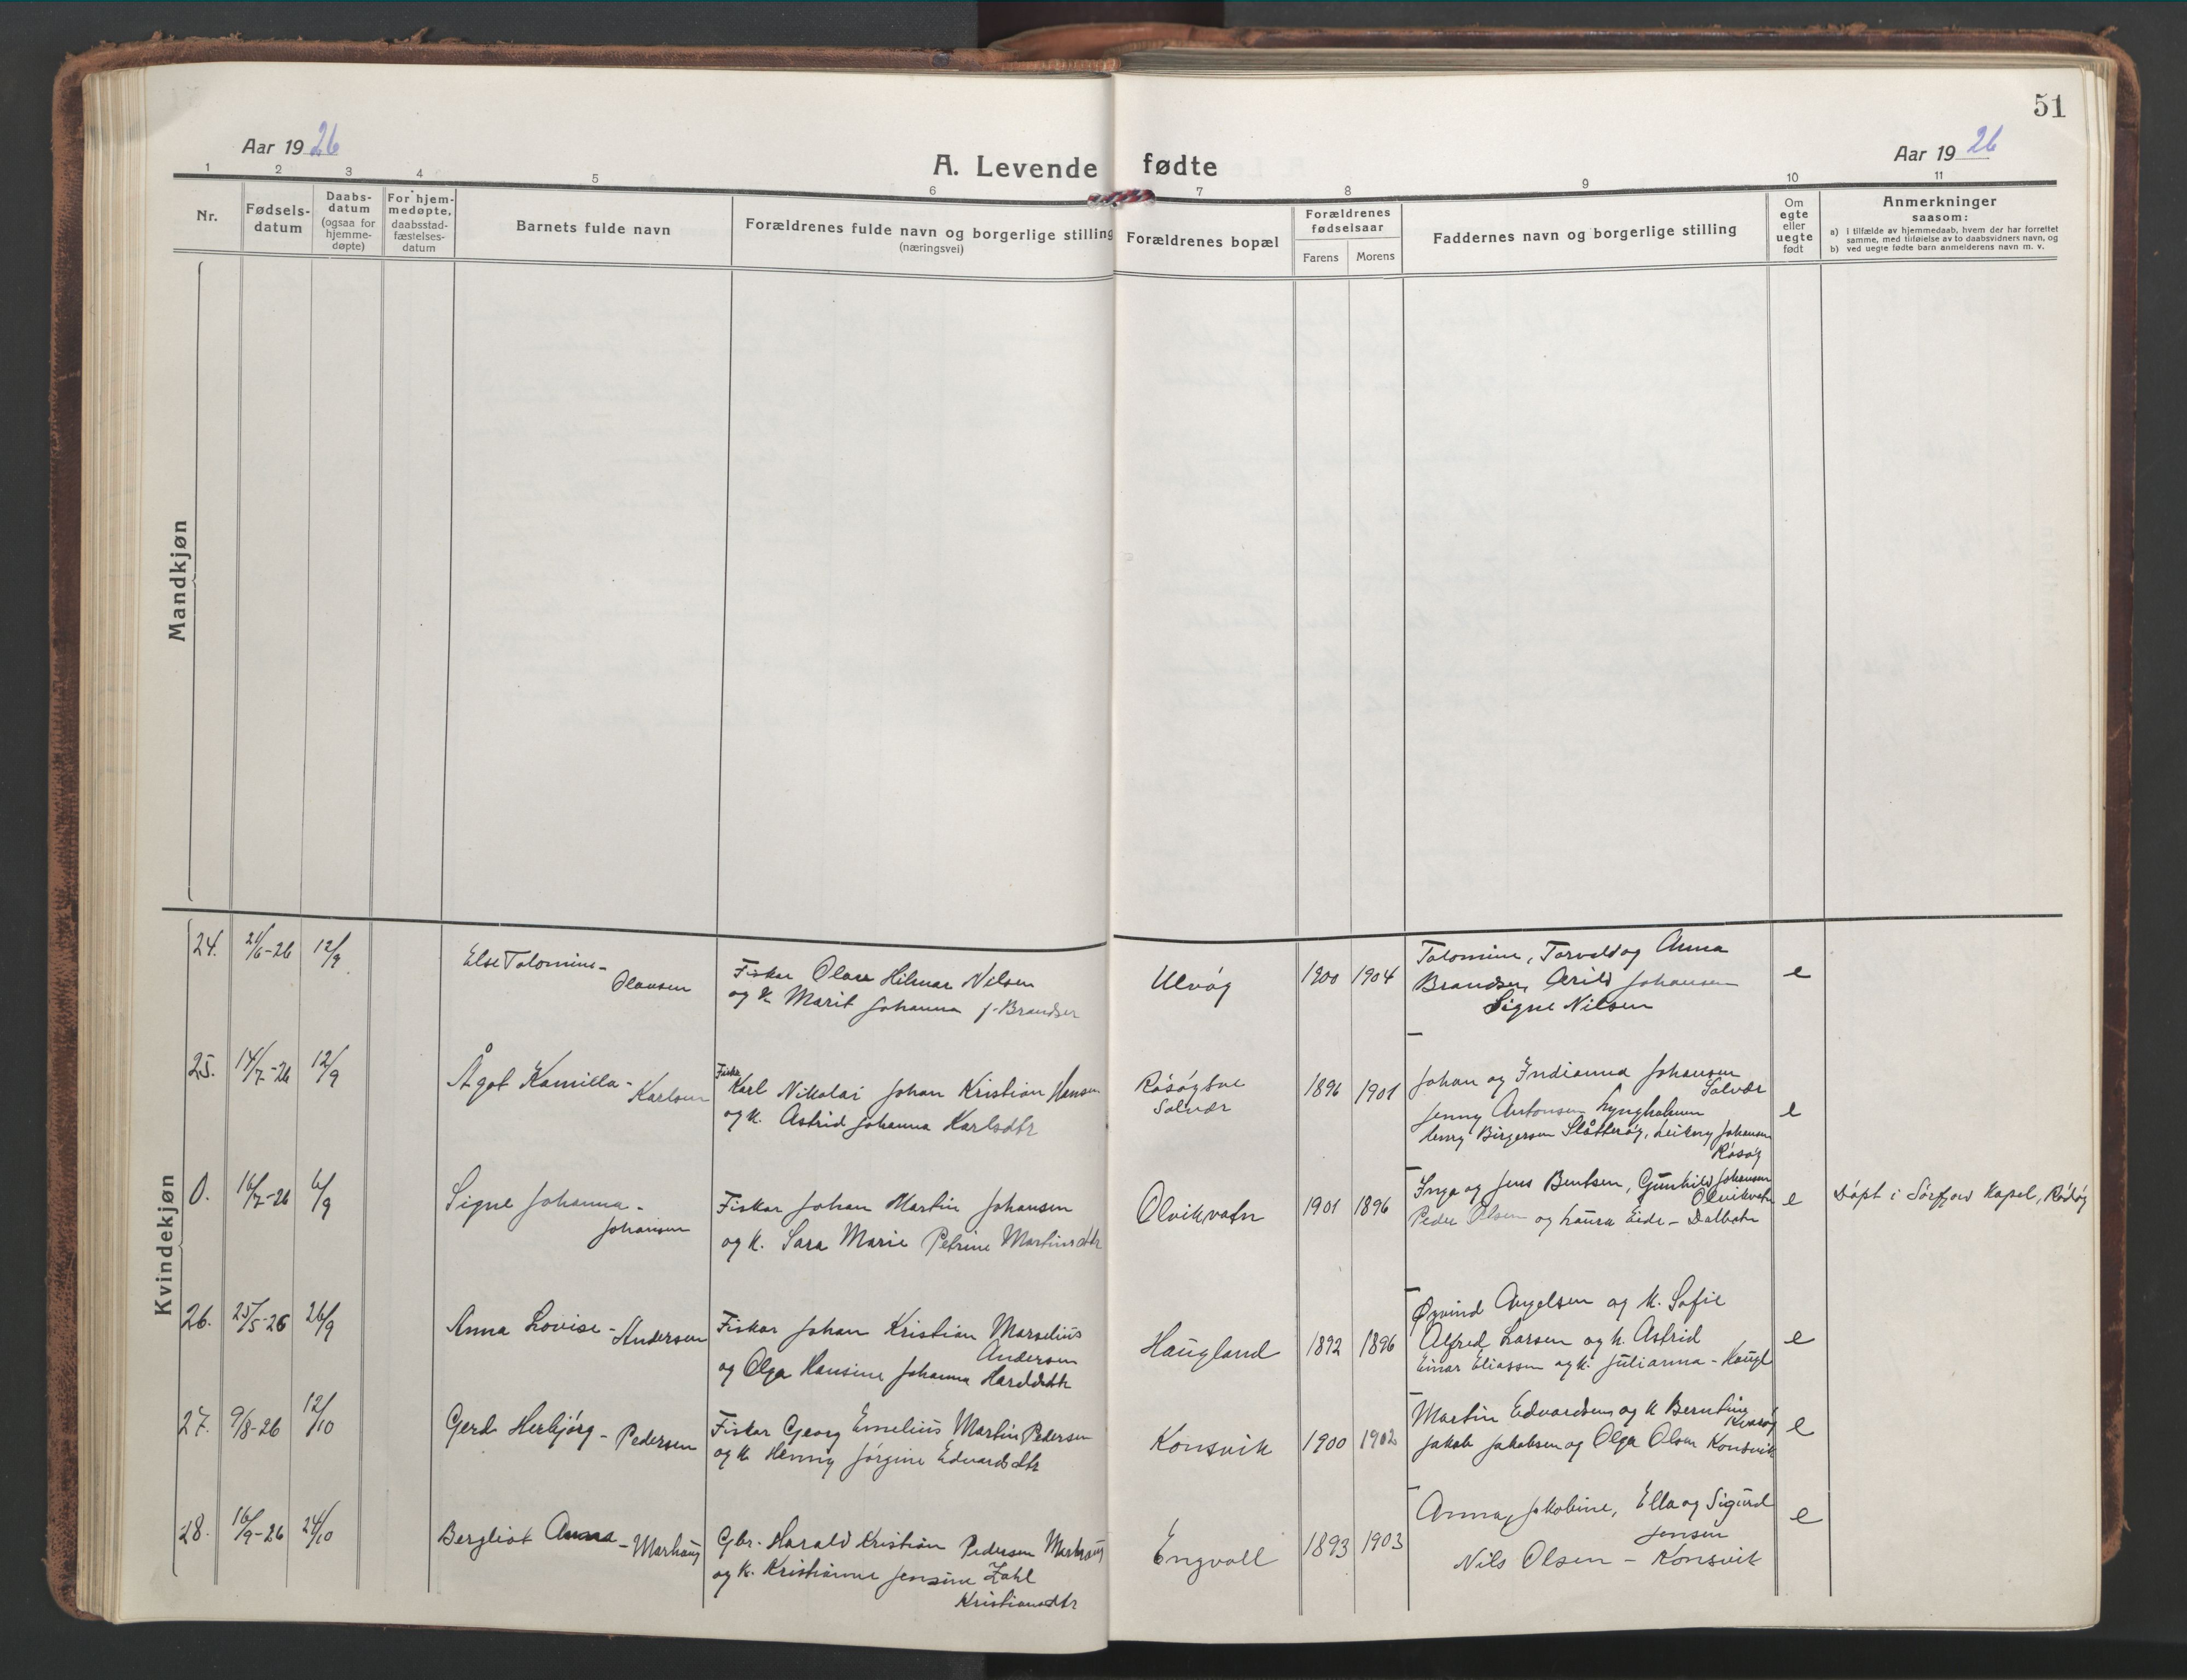 51
Aar 1926
A. Levende fødte
Aar 1926
1 2 3 4 5 6 7 8 9 10 11
Nr.
Fødsels-
datum
Daabs-
datum
(ogsaa for
hjemme-
døpte)
For hjem-
medøpte,
daabsstad-
fæstelses-
datum
Barnets fulde navn
Forældrenes fulde navn og borgerlige stilling
(næringsvei)
Forældrenes bopæl
Forældrenes
fødselsaar
Farens Morens
Faddernes navn og borgerlige stilling
Om
egte
eller
uegte
født
Anmerkninger
saasom:
a) I tilfælde av hjemmedaab, hvem der har forrettet
samme, med tilføielse av to daabsvidners navn, og
b) ved uegte fødte barn anmelderens navn m. v.
Mandkjøn
Kvindekjøn
24. 21/6-26 12/9
Else Tolomine-
Olausen
Fisker Olaus Hilmar Nilsen
og k. Marit Johanna f. Brandser
Ulvøy
1900 1904
Tolomine, Torvald og Anna
Brandser, Arild Johansen
Signe Nilsen
e
25. 14/7-26 12/9
Ågot Kamilla-
Karlsen
Fisker
Karl Nikolai Johan Kristian Hansen
og k. Astrid Johanna Karlsdtr
Solvær
1896 1901
Johan og Indianna Johansen
Solvær
Jenny Antonsen Lyngholmen
Birgersen Slåtterøy, Johansen
Råsøy
e
0. 16/7-26 6/9
Signe Johanna-
Johansen
Fisker Johan Martin Johansen
og k. Sara Marie Petrine Martinsdtr
Olvikvatn
1901 1896
Inga og Jens Bentsen, Gunhild Johansen
Olvikvatn
Peder Olsen og Laura Eide - Dalbotn
e
Døpt i Sørfjord Kapel, Rødøy
26. 25/5-26 26/9
Anna Lovise-Andersen
Fisker Johan Kristian Marselius
Andersen
og Olga Hansine Johanna Haraldsdtr
Haugland
1892 1896
Øyvind Angelsen og k. Sofie
Alfred Larsen og k. Astrid
Einar Eliassen og k. Julianna - Haugl
e
27. 9/8-26 12/10
Gerd Herbjørg-Pedersen
Fisker Georg Emelius Martin Pedersen
og k. Henny Jørgine Edvardsdtr
Konsvik
1900 1902
Martin Edvardsen og k Berntine
Kvarøy
Jakob Jakobsen og Olga Olsen Konsvik
e
28. 16/9-26 24/10
Bergliot Anna-Marhaug
Gbr. Harald Kristian Pedersen Marhaug
og k. Kristianne Jensine Zahl
Kristiansdtr
Engvoll
1893 1903
Anna, Jakobine, Ella og Sigurd
Jensen
Nils Olsen - Konsvik
e